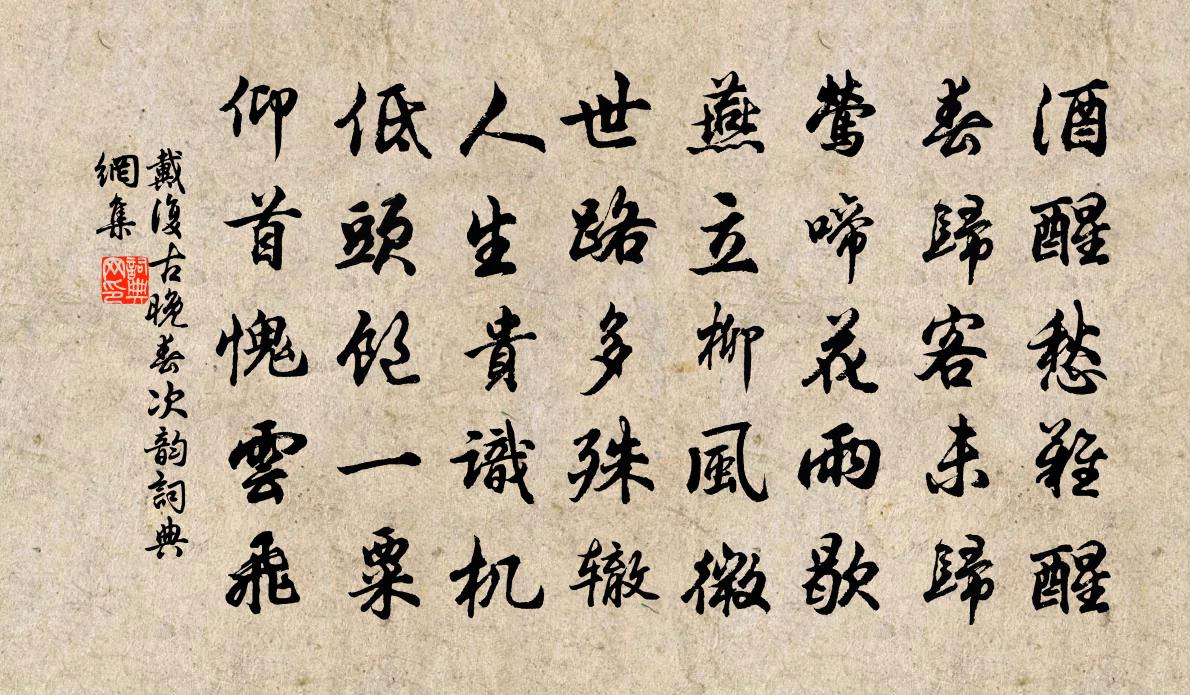 酒醒愁難醒
春歸客未歸
鶯啼花雨歇
燕立柳風微
世路多殊辙
人生貴識机
低頭飽一粟
仰首愧雲飛
戴復古晚春次韵詞典
網集
詞典
网印